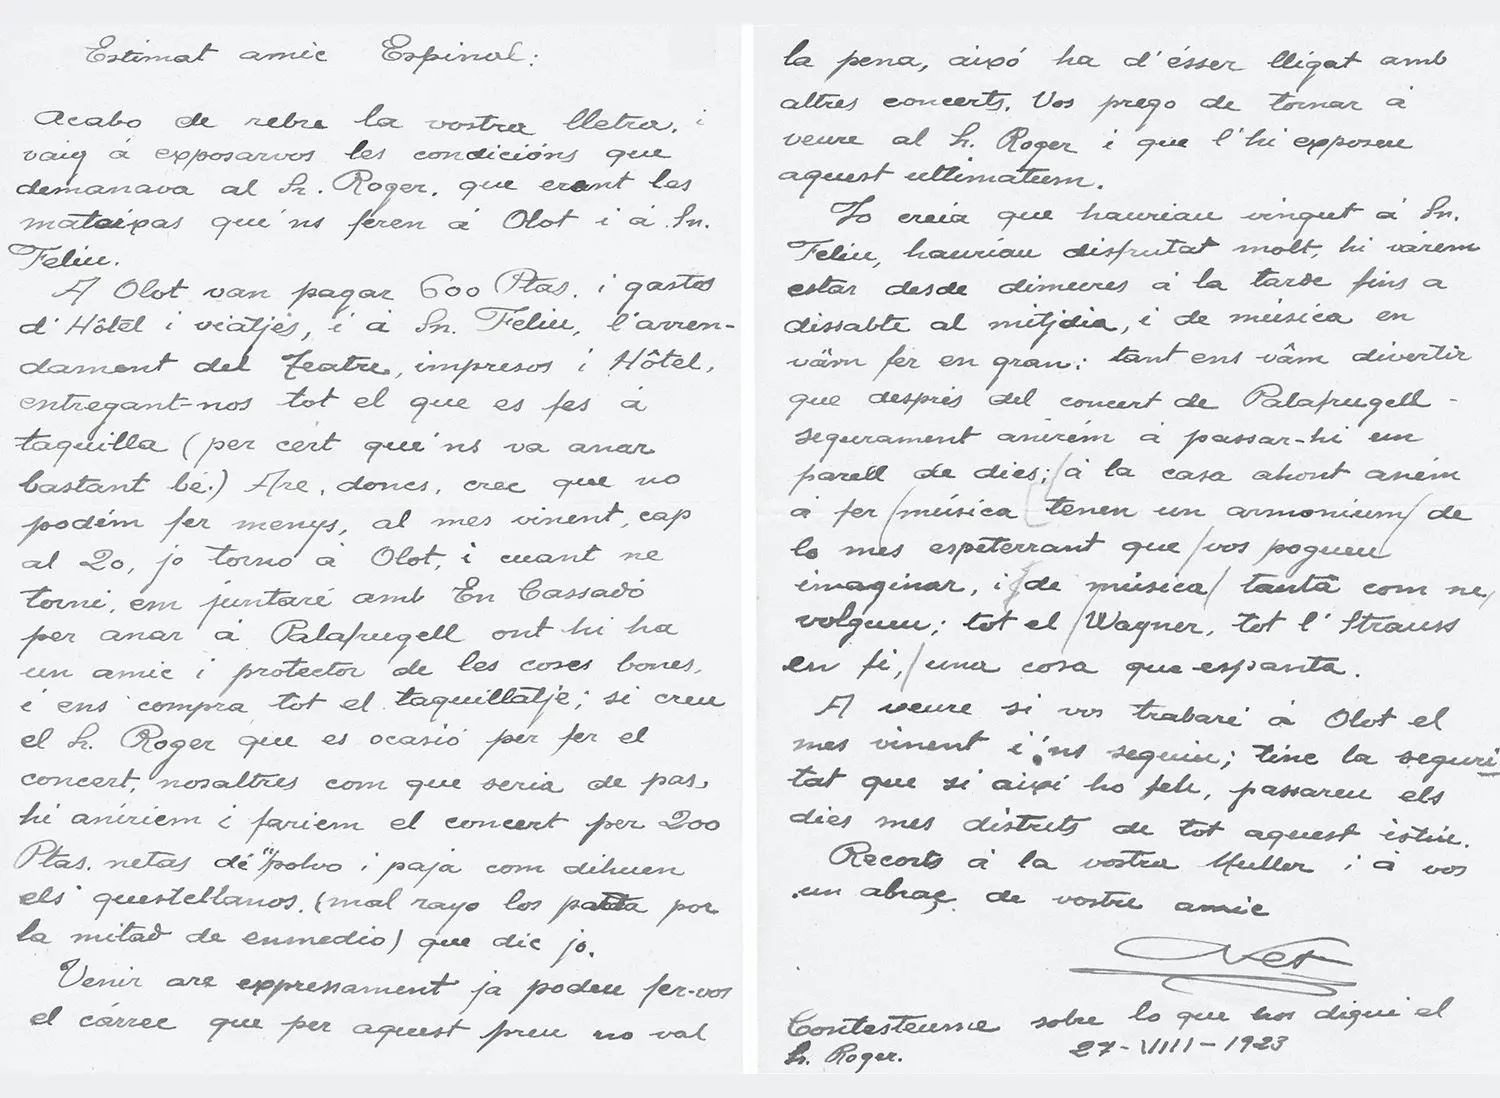 Estimat amic Espinal:
Acabo de rebre la vostra lletra, i
vaig á exposarvos les condicións que
demanava al Sr. Roger, que erant les
mateixas que'ns feren á Olot i á Sn.
Feliu.
A Olot van pagar 600 Ptas. i gastos
d'Hôtel i viatjes, i á Sn. Feliu, l'arren-
dament del Teatre, impresos i Hôtel,
entregant-nos tot el que es fes á
taquilla (per cert que'ns va anar
bastant bé.) Are, doncs, crec que no
podém fer menys, al mes vinent, cap
al 20, jo torno á Olot, i cuant ne
torni, em juntaré amb En Cassadó
per anar á Palafrugell ont hi ha
un amic i protector de les coses bones,
i ens compra tot el taquillatje; si creu
el Sr. Roger que es ocasió per fer el
concert, nosaltres com que seria de pas,
hi aniriem i fariem el concert per 200
Ptas. netas de "polvo i paja com dihuen
els questellanos. (mal rayo los parta por
la mitad de enmedio) que dic jo.
Venir are expressament ja podeu fer-vos
el cárrec que per aquest preu no val
la pena, aixó ha d'ésser lligat amb
altres concerts. Vos prego de tornar á
veure al Sr. Roger i que l'hi exposeu
aquest ultimatum.
Jo creia que hauriau vingut á Sn.
Feliu, hauriau disfrutat molt, hi várem
estar desde dimecres á la tarde fins a
dissabte al mitjdia, i de música en
vâm fer en gran: tant ens vâm divertir
que després del concert de Palafrugell -
segurament anirém á passar-hi un
parell de dies; á la casa ahont aném
á fer música tenen un armonium de
lo mes espeterrant que vos pogueu
imaginar, i de música tanta com ne
volgueu; tot el Wagner, tot l'Strauss
en fi, una cosa que espanta.
A veure si vos trobaré á Olot el
mes vinent i'ns seguiu; tinc la seguri
tat que si aixi ho feu, passareu els
dies mes distrets de tot aquest istiu.
Recorts á la vostra Muller i á vos
un abraç de vostre amic
Contesteume sobre lo que vos digui el
Sr. Roger.
27-VIIII-1923